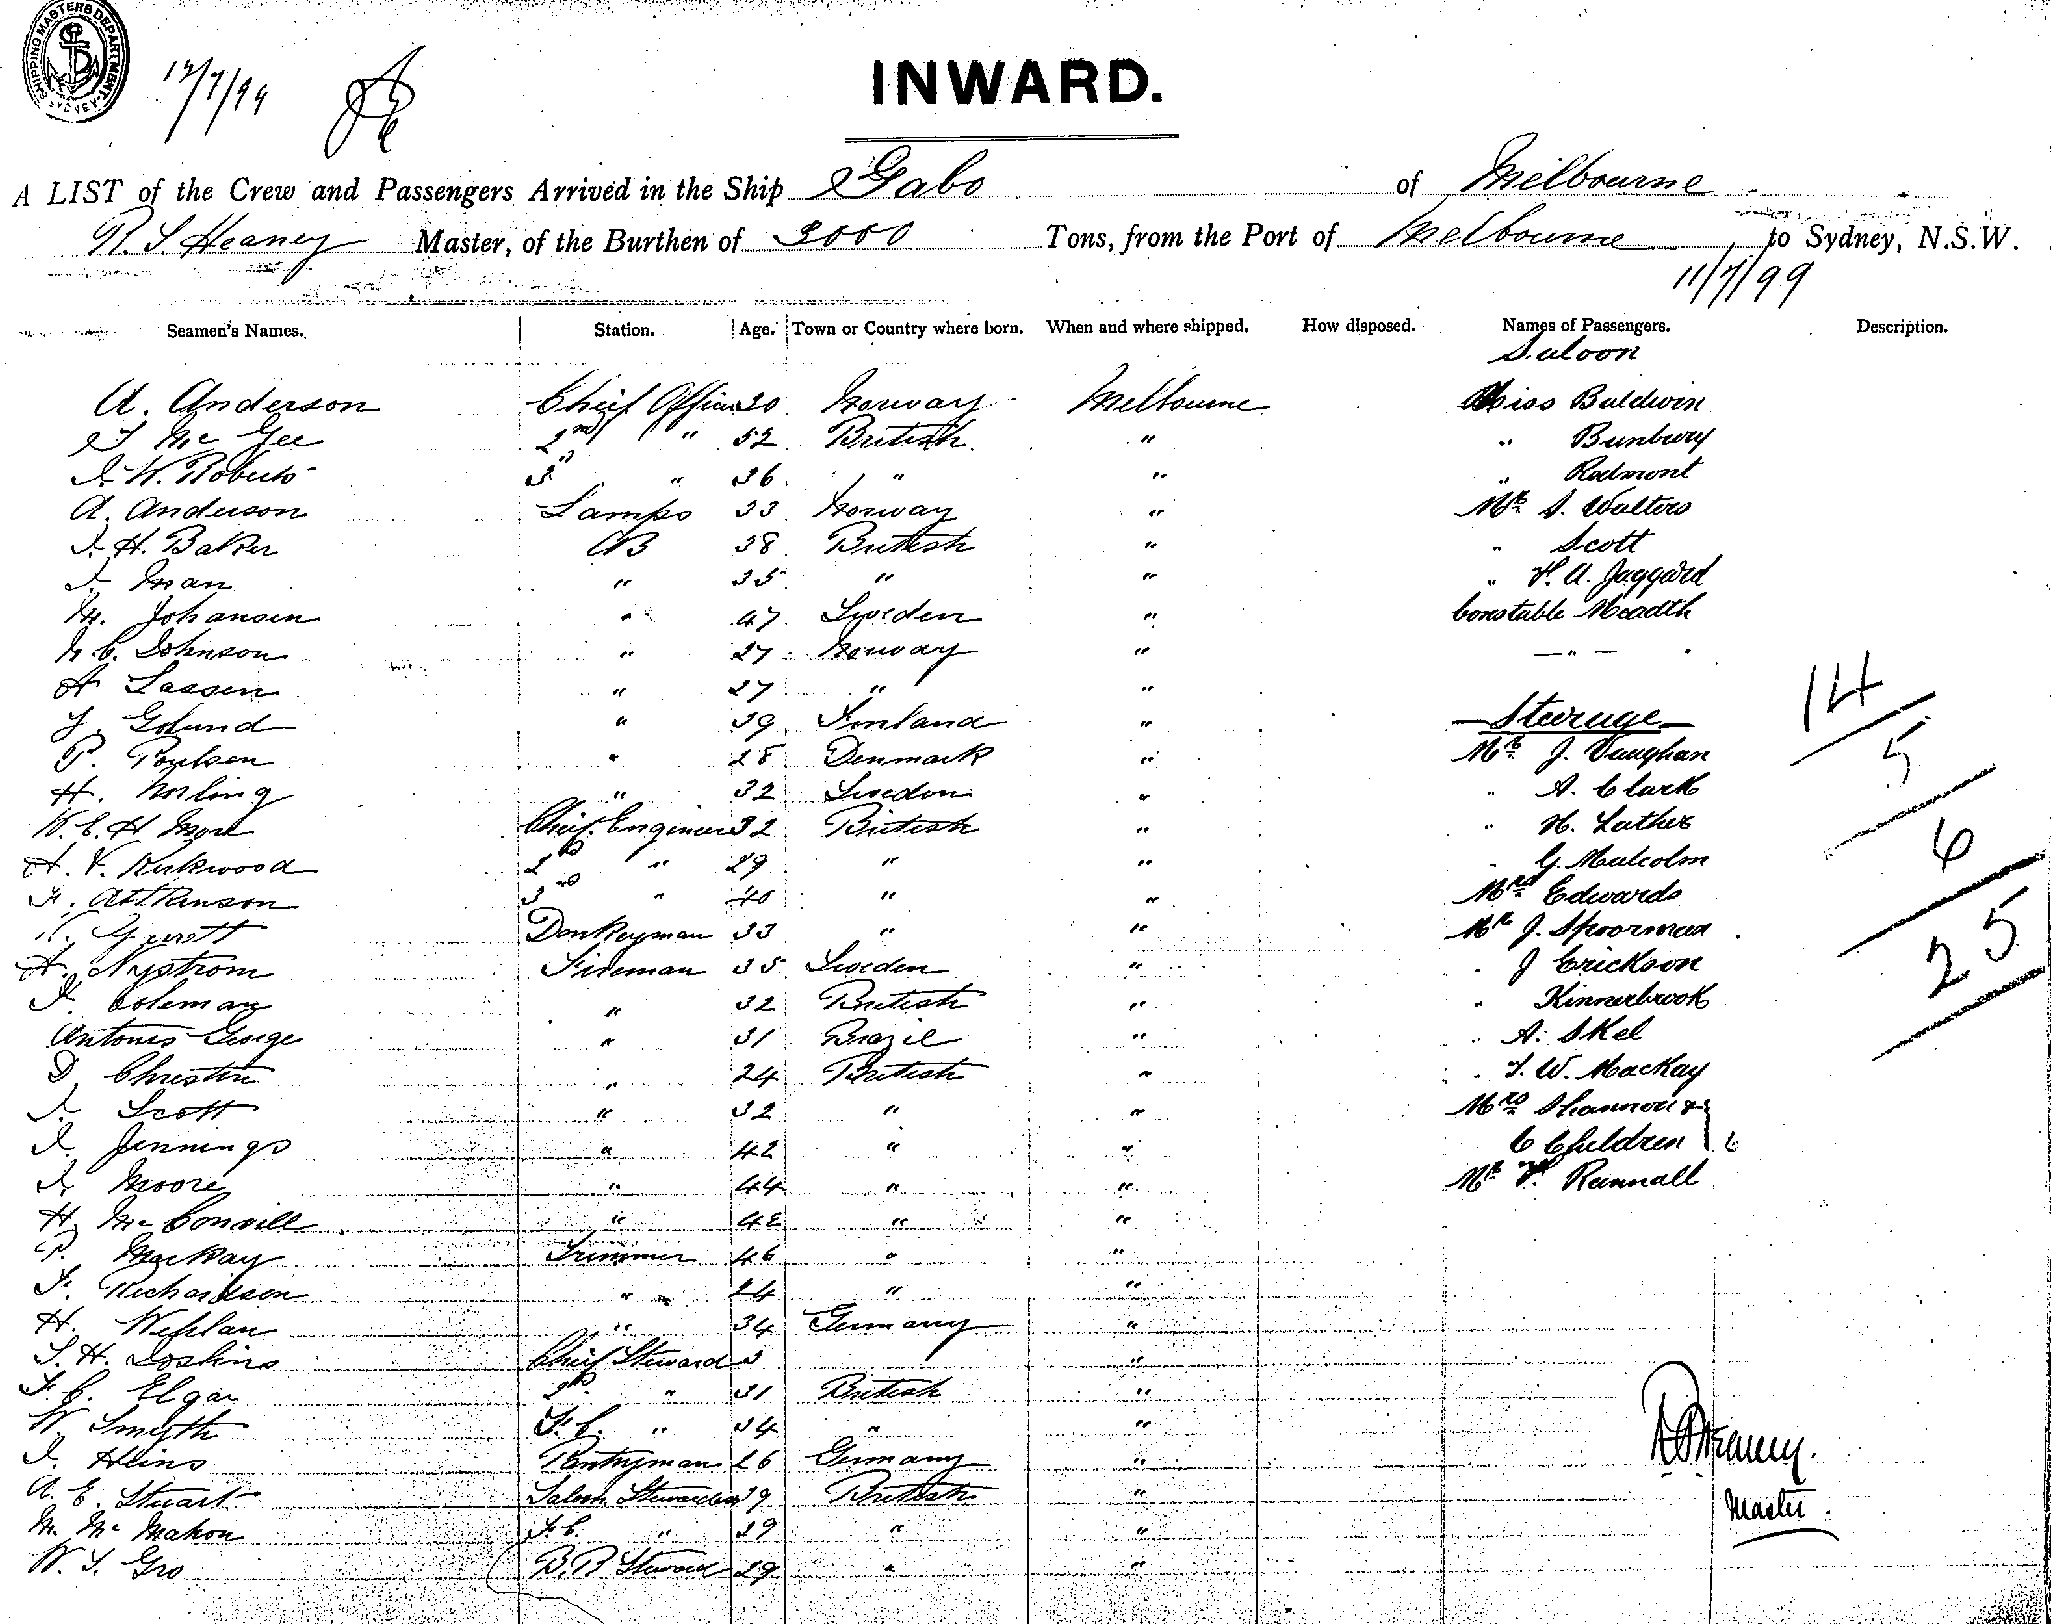 SHIPPING MASTERS DEPARTMENT SYDNEY
12/7/99
INWARD.
A LIST of the Crew and Passengers Arrived in the Ship Gabo of Melbourne
R. S Heaney Master, of the Burthen of 3000 Tons, from the Port of Melbourne to Sydney, N.S.W.
11/7/99
Seamen's Names. Station. Age. Town or Country where born. When and where shipped. How disposed. Names of Passengers. Description.
Saloon
A. Anderson Chief Officer 30 Norway Melbourne Miss Baldwin
Mc Gee 2nd " 52 British " " Bunbury
W. Roberts 3 " 36 " " " Redmont
A. Anderson Lamps 33 Norway " Mr S. Walters
J. H. Baker AB 38 British " " Scott
J. Man " 35 " " " V. A. Jaggard
M. Johansen " 47 Sweden " Constable Meadth
N. C. Johnson " 27 Norway " — " —
A Lassen " 27 " "
Steerage
" 39 Finland "
P. Poulsen " 28 Denmark " Mr J. Vaughan
H. Norling " 32 Sweden " " A. Clark
W. E. H More Chief Engineer 32 British " " H. Luther
H. V. Kirkwood 2nd " 29 " " " G. Malcolm
Attkinson 3rd " 40 " " Mrs Edwards
Donkeyman 33 " " Mr J. Spoorman
A. Nystrom Fireman 35 Sweden " " J Erickson
J. Coleman " 32 British " " Kinnerbrook
Antonis George " 31 Brazil " " A. Skel
D. Christin " 24 British " " T. W. Mackay
J. Scott " 32 " " Mrs Shannon &
J. Jennings " 42 " " 6 Children } 6
J. Moore " 44 " " Mr V. Rannall
H. McConvill " 42 " "
P. Mackay Trimmer 46 " "
F. Richardson " 24 " "
H. Wehlan " 34 Germany "
S. H. Hoskins Chief Steward 3 "
F. C. Elgar 2nd " 31 British "
W. Smyth F. C. " 34 " "
J. Heins Pantryman 26 Germany "
A. E. Stuart Saloon Stewardess 39 British "
M. McMahon F. C. " 29 " "
W. S. Gro B. R Steward 29 " "
14
5
6
25
R S Heaney.
Master.